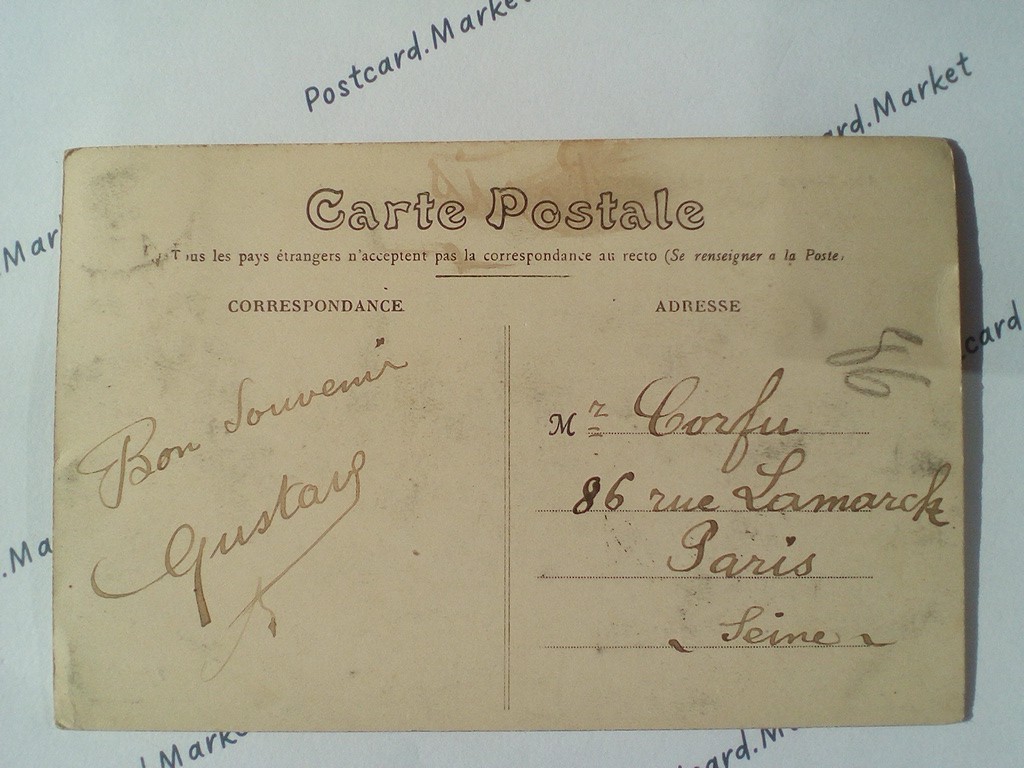 Postcard.Market
Carte Postale
Tous les pays étrangers n'acceptent pas la correspondance au recto (Se renseigner a la Poste)
CORRESPONDANCE
ADRESSE
Bon Souvenir
Gustave
Mr Corfu
86 rue Lamarck
Paris
Seine